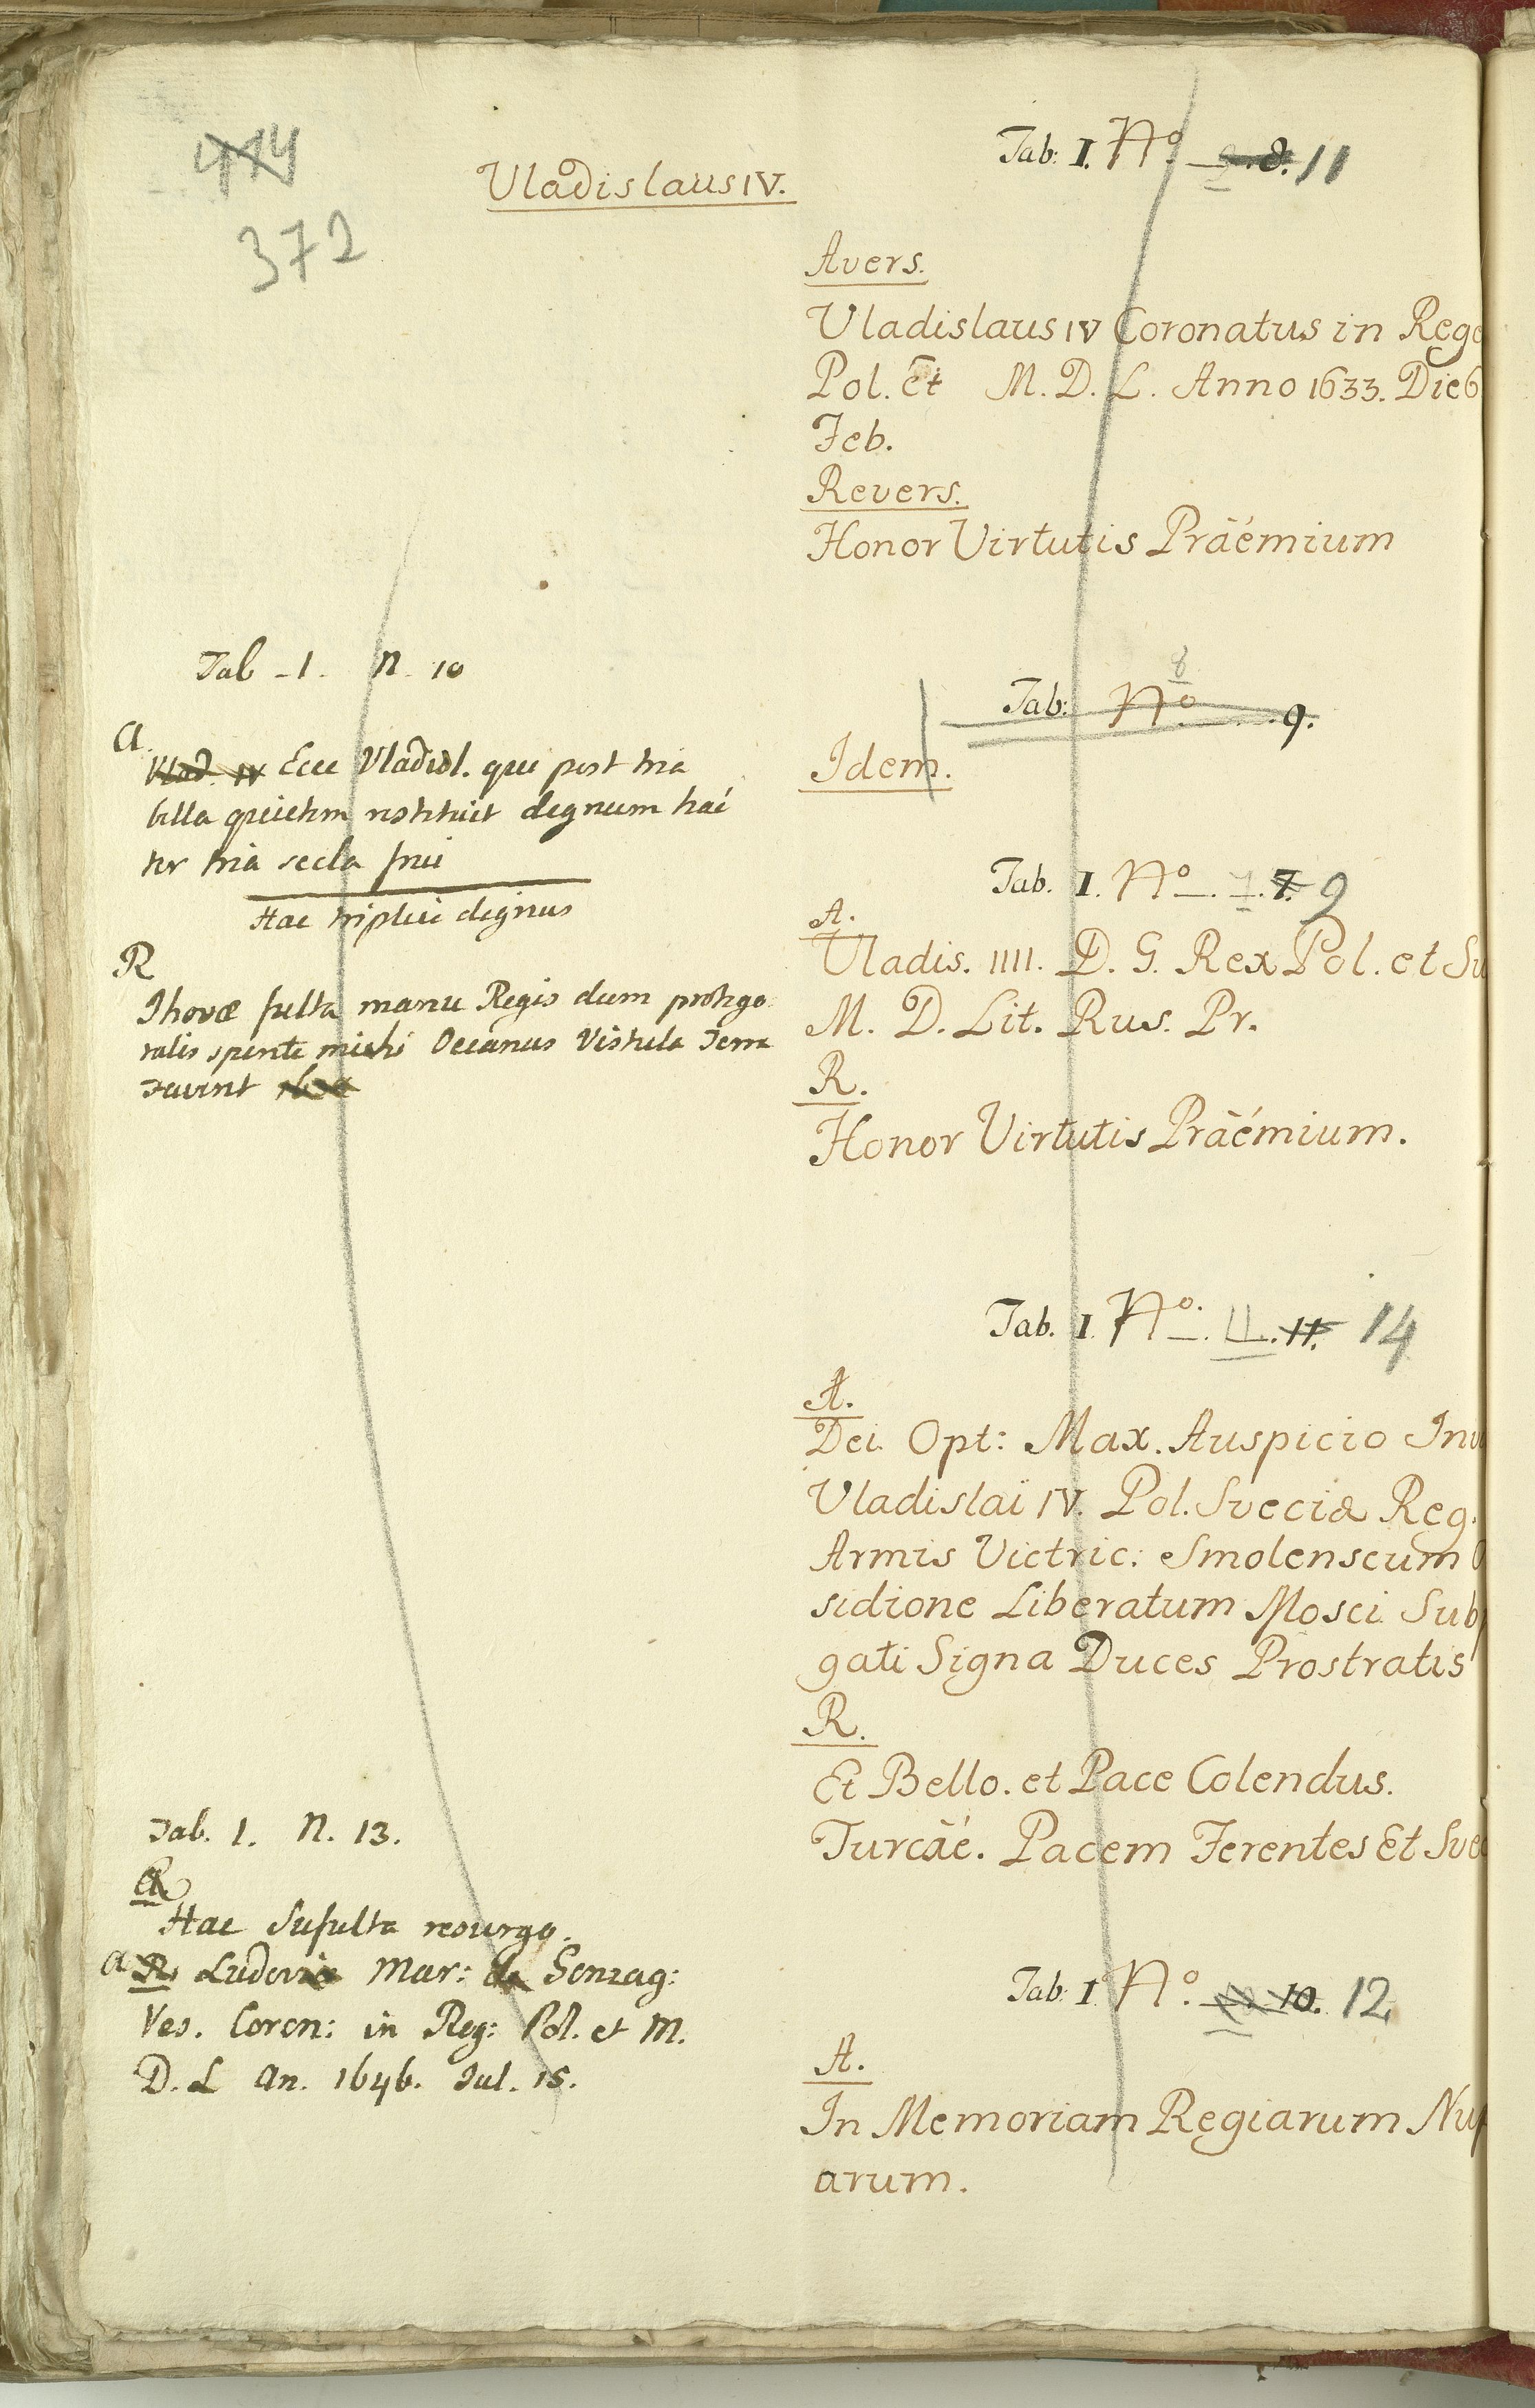 414
372
Vladislaus IV.
Tab: I. No 8. 11
Avers.
Vladislaus IV Coronatus in Rege
Pol. Et M. D. L. Anno 1633. Die 6
Feb.
Revers.
Honor Virtutis Präémium
8
Tab: No 9.
Idem.
Tab. I. No 7. 7. 9
A.
Vladis. IIII. D. G. Rex Pol. et Su
M. D. Lit. Rus. Pr.
R.
Honor Virtutis Präémium.
Tab. I. No. 11. 11. 14
A.
Dei Opt: Max. Auspicio Inv
Vladislai IV. Pol. Sveciæ Reg.
Armis Victric: Smolenscum
sidione Liberatum Mosci Sub
gati Signa Duces Prostratis
R.
Et Bello. et Pace Colendus.
Turcäé. Pacem Ferentes Et Sve
Tab: I No. 10. 12
A.
In Memoriam Regiarum Nup
arum.
Tab - 1. N. 10
A.
Vlad. IV Ecce Vladisl. qui post tria
bella quietem restituit dignum hac
ter tria secla frui
Hac triplici dignus
R
Jhovæ fulta manu Regis dum protego
talis spirite michi Oceanus Vistula Terra
Favent
Tab. 1. N. 13.
R
Hac Sufulta resurgo.
A R Ludovic Mar: de Gonzag:
Ves. Coron: in Reg: Pol. et M.
D. L An. 1646. Jul. 15.